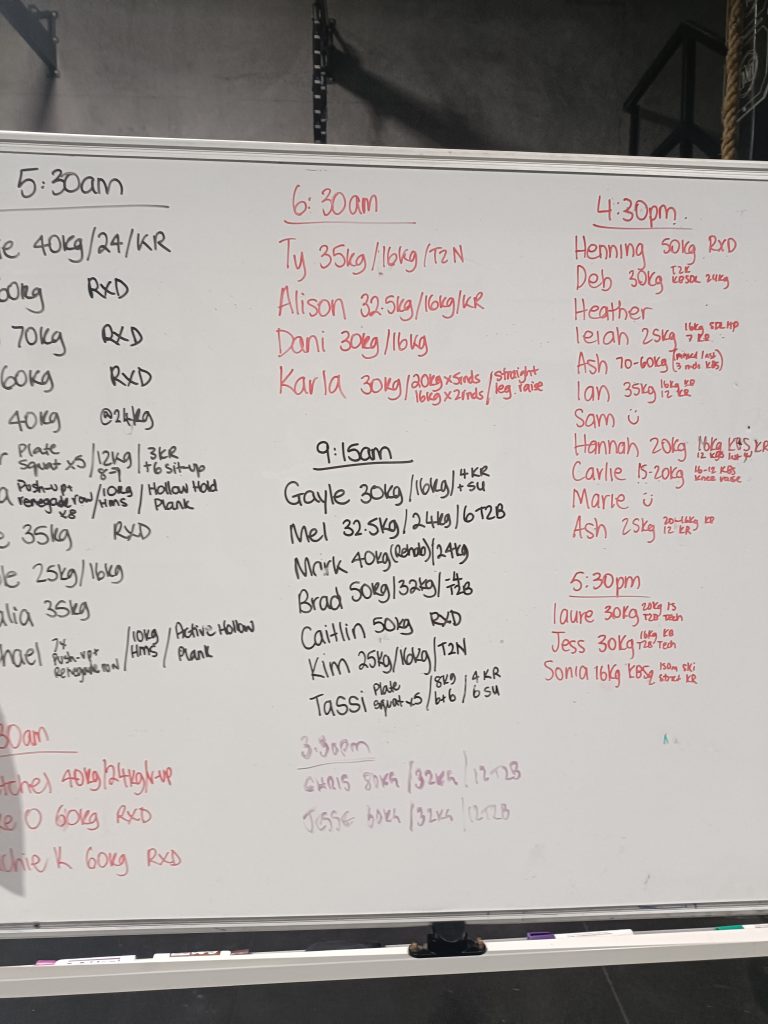 5:30am
40kg/24/KR
60kg RXD
70kg RXD
60kg RXD
40kg @24kg
Plate Squat x5 / 12kg 8-9 / 3KR +6 sit-up
Push-up+ renegade row x8 / 10kg Hms / Hollow Hold Plank
35kg RXD
25kg/16kg
35kg
7x Push-up+ Renegade row / 10kg Hms / Active Hollow Plank
30am
40kg/24kg/v-up
O 60kg RXD
K 60kg RXD
6:30am
Ty 35kg/16kg/T2N
Alison 32.5kg/16kg/KR
Dani 30kg/16kg
Karla 30kg/20kg x 5rnds 16kg x 2rnds/straight leg raise
9:15am
Gayle 30kg/16kg/4 KR + SU
Mel 32.5kg/24kg/6T2B
Mark 40kg(Rehab)/24kg
Brad 50kg/32kg/-4 T2B
Caitlin 50kg RXD
Kim 25kg/16kg/T2N
Tassi Plate squat x5/8kg 6+6/4 KR 6 SU
3:30pm
CHRIS 80KG/32KG/12T2B
JESSE 50KG/32KG/12T2B
4:30pm
Henning 50kg RXD
Deb 30kg T2K KBSDL 24kg
Heather
leiah 25kg 16kg 7 KR
Ash 70-60kg (missed last 3 rnds KBS)
Ian 35kg 16kg KB 12 KR
Sam ☺
Hannah 20kg 16kg KBS KR 12 kgs last
Carlie 15-20kg 16-12 KBS knee raise
Marie ☺
Ash 25kg 20-16kg KB 12 KR
5:30pm
laure 30kg 20kg T2B Tech
Jess 30kg 16kg KB T2B Tech
Sonia 16kg KBSq 150m ski strict KR